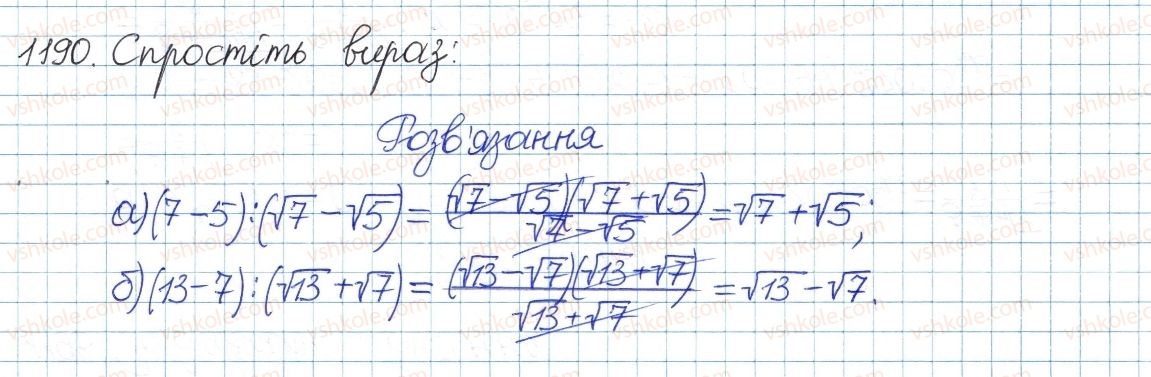 1190. Спростіть вираз:
Розв'язання
а) (7 − 5) : (√7 − √5) = (√7 − √5)(√7 + √5) / (√7 − √5) = √7 + √5;
б) (13 − 7) : (√13 + √7) = (√13 − √7)(√13 + √7) / (√13 + √7) = √13 − √7.